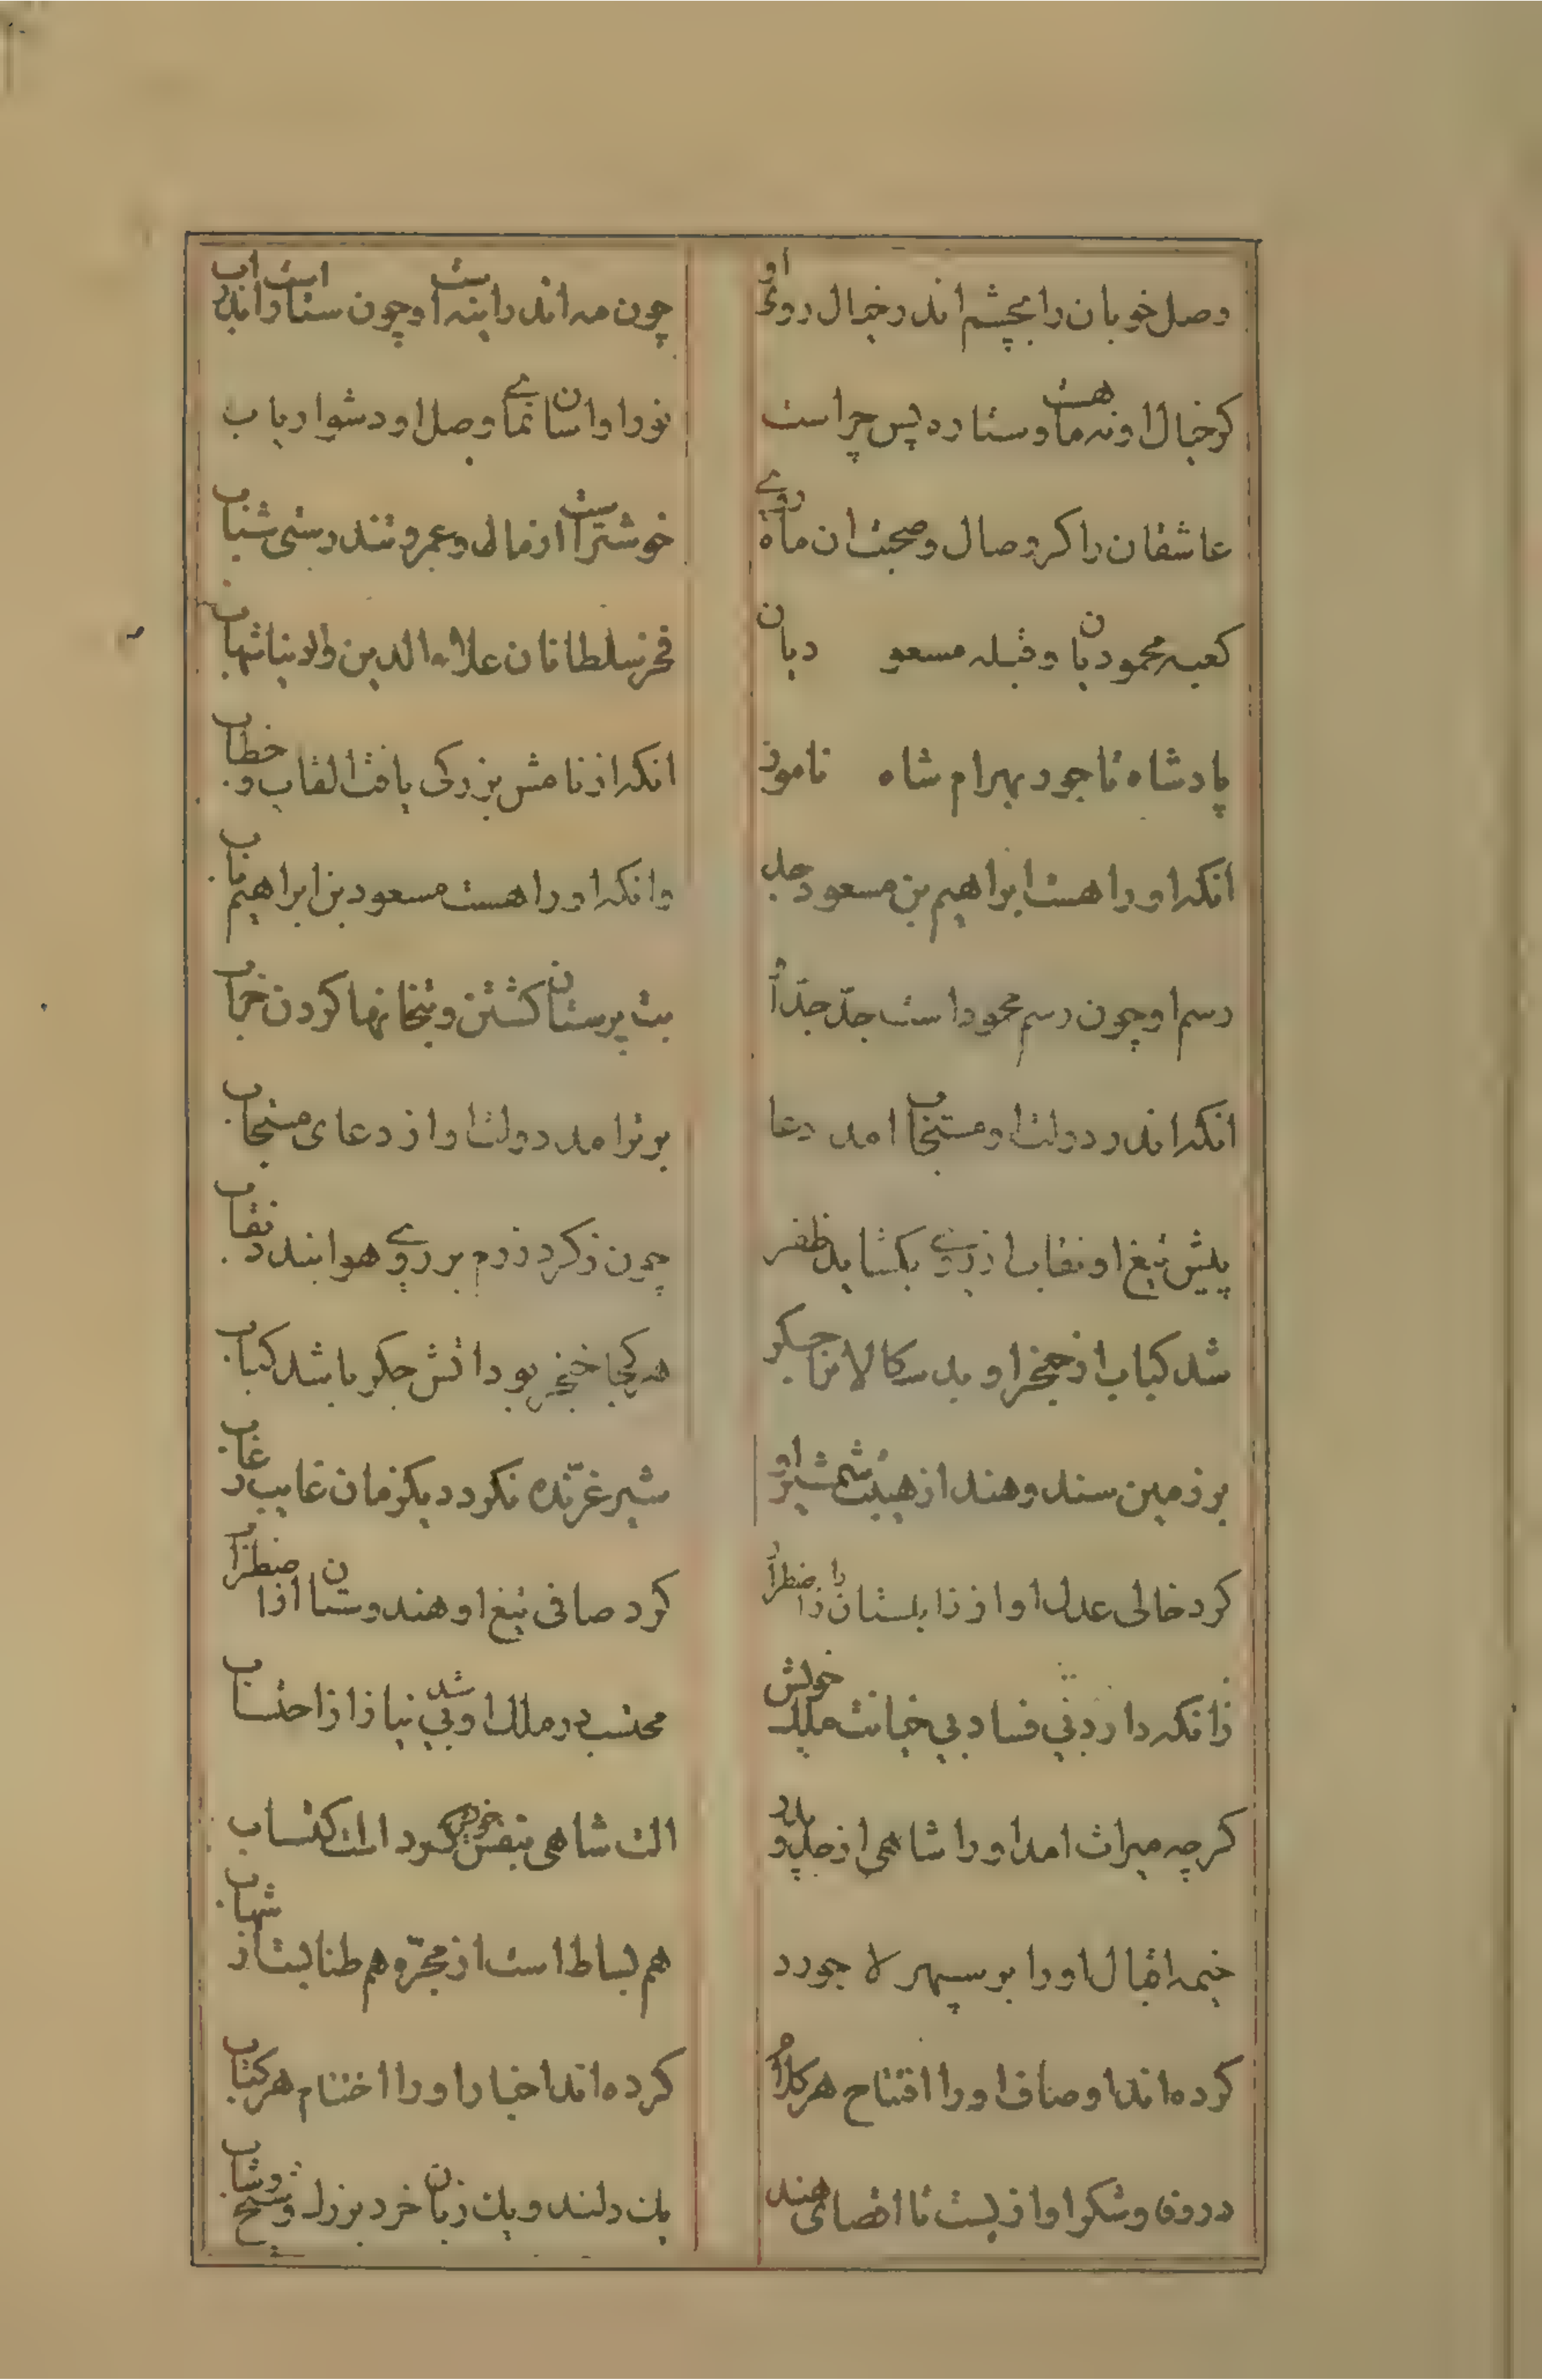 وصل خوبان را بچشم اندر خیال روی او
چون مه اندر اینه است او چون ستاره است اندر اب
کر خیال او نه ماه وستاره هست پس چراست
نور او اسان نمای وصل او دشوار یاب
عاشقان را کر وصال وصحبت ان ماه روی
خوشتر است از مال وعمر وتندرستی شباب
کعبه محمودیان وقبله مسعودیان
فخر سلطانان علاء الدین والدنیا شهاب
پادشاه تاجور بهرام شاه نامور
انکه از نامش بزرکی یافت القاب و خطاب
انکه او را هست ابراهیم بن مسعود جد
وانکه او را هست مسعود بن ابراهیم باب
رسم او چون رسم محمود است جدّ جدّ او
بت پرستان کشتن وبتخانها کردن خراب
انکه اندر دولت او مستجاب امد دعا
برتر امد دولت او از دعای مستجاب
پیش تیغ او نقاب از روی بکشاید ظفر
چون ز کرد رزم بر روی هوا بندد نقاب
شد کباب از خنجر او بد سکالانرا جکر
هر کجا خنجر بود اتش جکر باشد کباب
بر زمین سند وهند از هیبت شمشیر او
شیر غرّنده نکردد یکزمان غایب ز غاب
کرد خالی عدل او از زابلستان را ز اضطرا
کرد صافی تیغ او هندوستان را از اضطراب
زانکه دارد بی فساد بی خیانت ملک خویش
محتسب در ملک او شد بی نیاز از احتساب
کرچه میراث امد او را شاهی از جد و پدر
الت شاهی بنفس خویش کرد است اکتساب
خیمه اقبال او را بر سپهر لاجورد
هم بساط است از مجرّه هم طنابست از شهاب
کرده‌اند اوصاف او را افتتاح هر کلام
کرده‌اند اخبار او را اختتام هر کتاب
در وفا وشکر او از بست تا اقصای هند
یک دلند ویک زبان خرد بزرک وشیخ وشاب